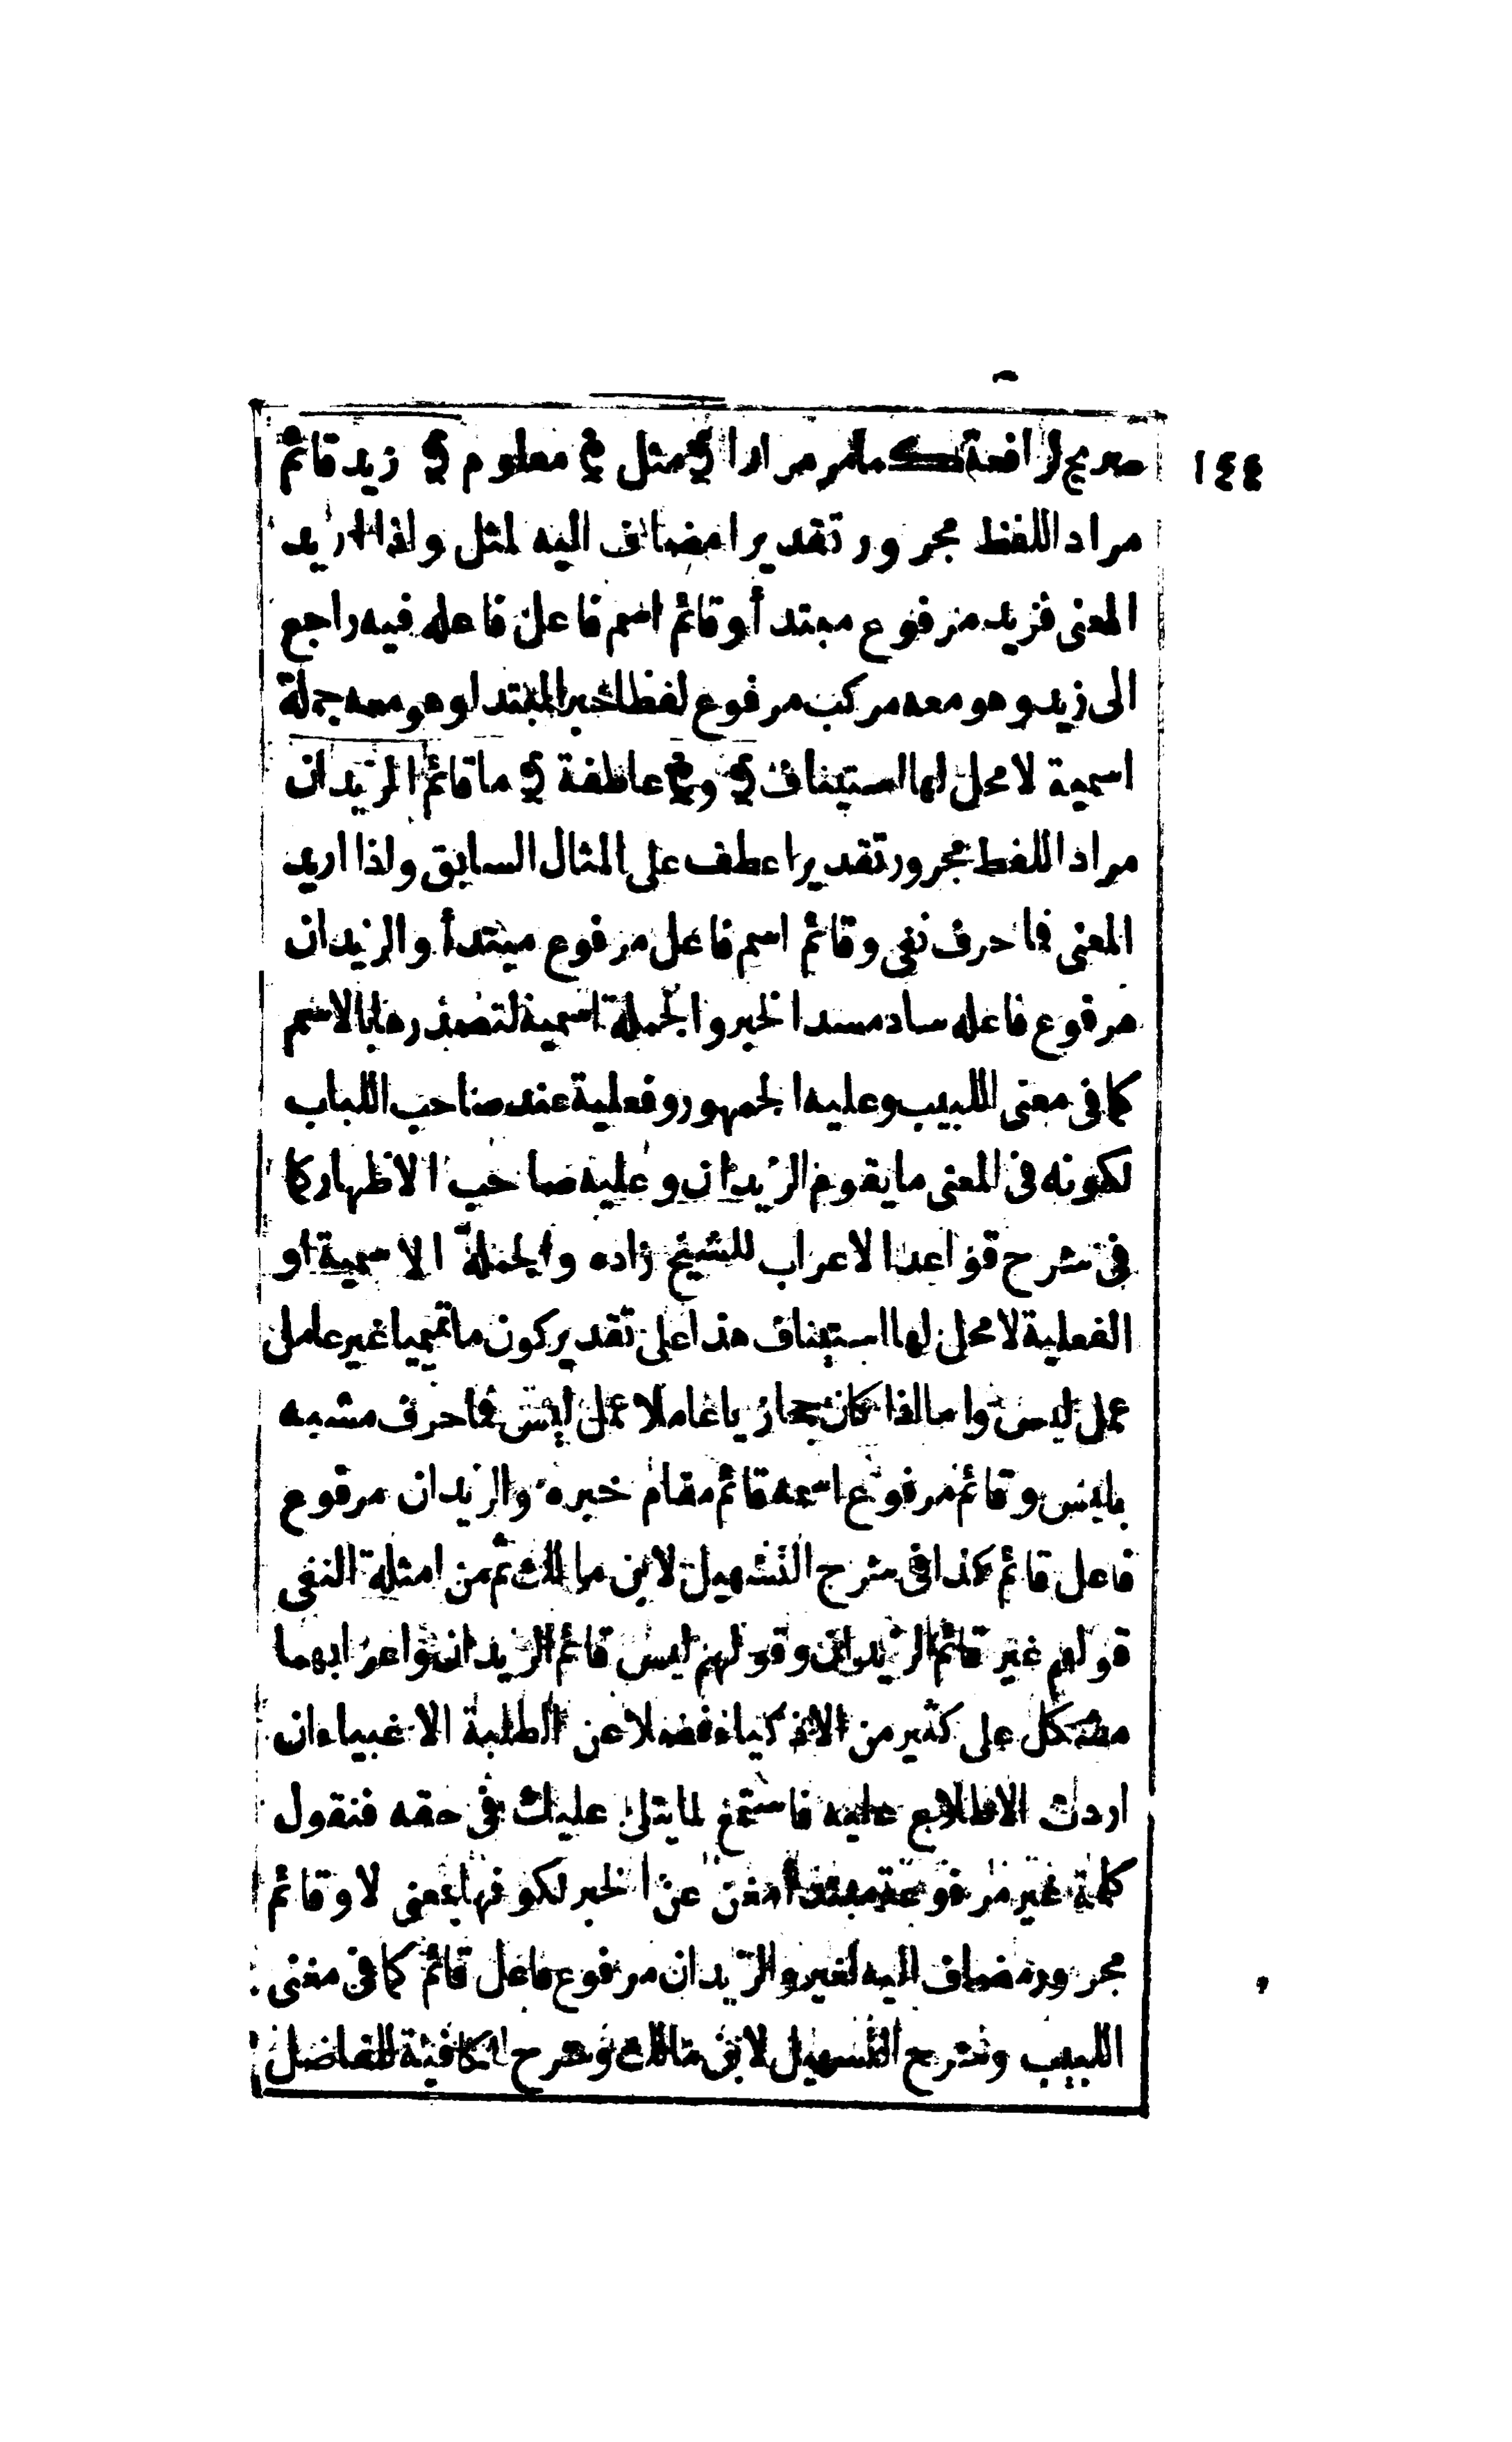 ١٤٤
صريح لرافعة كما مر مرارا ﴿ مثل ﴾ معلوم ﴿ زيد قائم
مراد اللفظ مجرور تقديرا مضاف اليه لمثل واذا اريد
المعنى فزيد مرفوع مبتدأ وقائم اسم فاعل فاعله فيه راجع
الى زيد وهو معه مركب مرفوع لفظا خبر المبتدا وهو معه جملة
اسمية لا محل لها استيناف ﴿ و ﴾ عاطفة ﴿ ما قائم الزيدان
مراد اللفظ مجرور تقديرا عطف على المثال السابق واذا اريد
المعنى فما حرف نفى وقائم اسم فاعل مرفوع مبتدأ والزيدان
مرفوع فاعله ساد مسد الخبر والجملة اسمية لتصدرها بالاسم
كما فى مغنى اللبيب وعليه الجمهور وفعلية عند صاحب اللباب
لكونه فى المعنى ما يقوم الزيدان وعليه صاحب الاظهار كما
فى شرح قواعد الاعراب للشيخ زاده والجملة الاسمية او
الفعلية لا محل لها استيناف هذا على تقدير كون ما تميميا غير عامل
عمل ليس واما اذا كان حجازيا عاملا عمل ليس فما حرف مشبه
بليس وقائم مرفوع اسمه قائم مقام خبره والزيدان مرفوع
فاعل قائم كذا فى شرح التسهيل لابن مالك ثم من امثلة النفى
قولهم غير قائم الزيدان وقولهم ليس قائم الزيدان واعرابهما
مشكل على كثير من الاذكياء فضلا عن الطلبة الاغبياء ان
اردت الاطلاع عليه فاستمع لما يتلى عليك فى حقه فنقول
كلمة غير مرفوعة مبتدأ مغن عن الخبر لكونها بمعنى لا وقائم
مجرور مضاف اليه لغير والزيدان مرفوع فاعل قائم كما فى مغنى
اللبيب وشرح التسهيل لابن مالك وشرح الكافية للفاضل